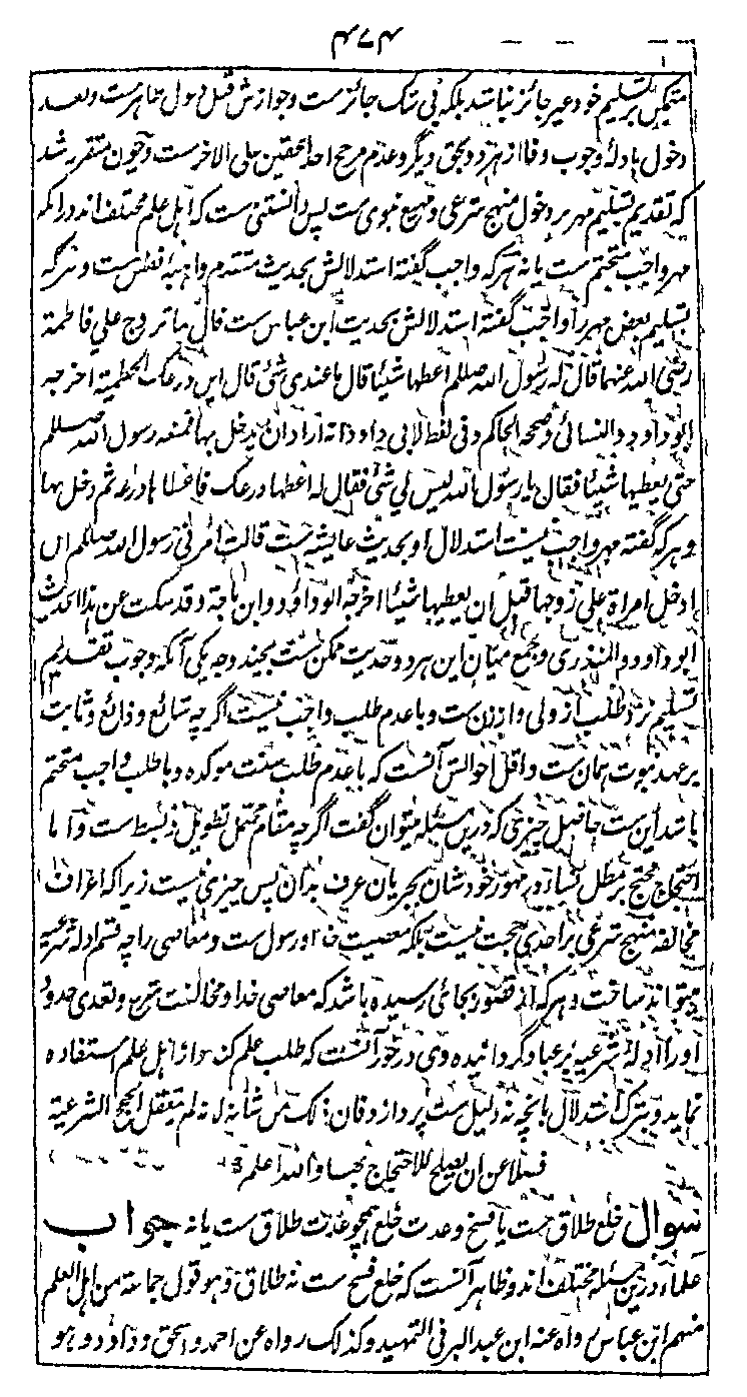 ۴۷۴
متمکین بر تسلیم خود غیر جائز نباشد بلکه بی شک جائزست و جوازش قبل دخول ظاهرست و بعد
دخول بادلهٔ وجوب وفا از هر دو بحق دیگر و عدم مرجح احد الحقین علی الآخرست و چون متقرر شد
که تقدیم تسلیم مهر بر دخول منهج شرعی و مهیع نبوی ست پس دانستنی ست که اهل علم مختلف اند در آنکه
مهر واجب متحتم ست یا نه هر که واجب گفته استدلالش بحدیث متقدم ست و هر که
تسلیم بعض مهر را واجب گفته استدلالش بحدیث ابن عباس ست قال لما تزوج علی فاطمة
رضی الله عنهما قال له رسول الله صللم اعطها شیئا قال ما عندی شئ قال این درعک الحطمیة اخرجه
ابو داود والنسائی وصححه الحاکم وفی لفظ لابی داود انه اراد ان یدخل بها فمنعه رسول الله صللم
حتی یعطیها شیئا فقال یا رسول الله لیس لی شئ فقال له اعطها درعک فاعطاها درعه ثم دخل بها
و هر که گفته مهر واجب نیست استدلال او بحدیث عایشه ست قالت امرنی رسول الله صللم ان
ادخل امرأة علی زوجها قبل ان یعطیها شیئا اخرجه ابو داود وابن ماجة وقد سکت عن هذا الحدیث
ابو داود والمنذری و جمع میان این هر دو حدیث ممکن ست بچند وجه یکی آنکه وجوب تقدیم
تسلیم نزد طلب از ولی و از زن ست و با عدم طلب واجب نیست اگر چه شائع و ذائع و ثابت
بر عهد نبوت همان ست و اقل احوالش آنست که با عدم طلب سنت موکده و با طلب واجب متحتم
باشد این ست حاصل چیزی که درین مسئله میتوان گفت اگر چه مقام محتمل تطویل و بسط ست و اما
احتجاج محتج بر مطل نساء در مهور خودشان بجریان عرف بدان پس چیزی نیست زیرا که اعراف
مخالفه منهج شرعی بر احدی حجت نیست بلکه معصیت خدا و رسول ست و معاصی را چه قسم ادلهٔ شرعیه
میتواند ساخت و هر که از قصور بجائی رسیده باشد که معاصی خدا و مخالفت شرع و تعدی حدود
او را ادلهٔ شرعیه بر عباد گردانیده وی در خور آنست که طلب علم کند و از اهل علم استفاده
نماید و بترک استدلال بانچه نه دلیل ست پردازد فان ذلک من شأنه لانه لم یتعقل الحجج الشرعیة
فضلا عن ان یصلح للاحتجاج بها والله اعلم
سوال خلع طلاق ست یا فسخ و عدت خلع همچو عدت طلاق ست یا نه جواب
علماء درین مسئله مختلف اند و ظاهر آنست که خلع فسخ ست نه طلاق وهو قول جماعة من اهل العلم
منهم ابن عباس رواه عنه ابن عبد البر فی التمهید وکذلک رواه عن احمد واسحق وداود وهو